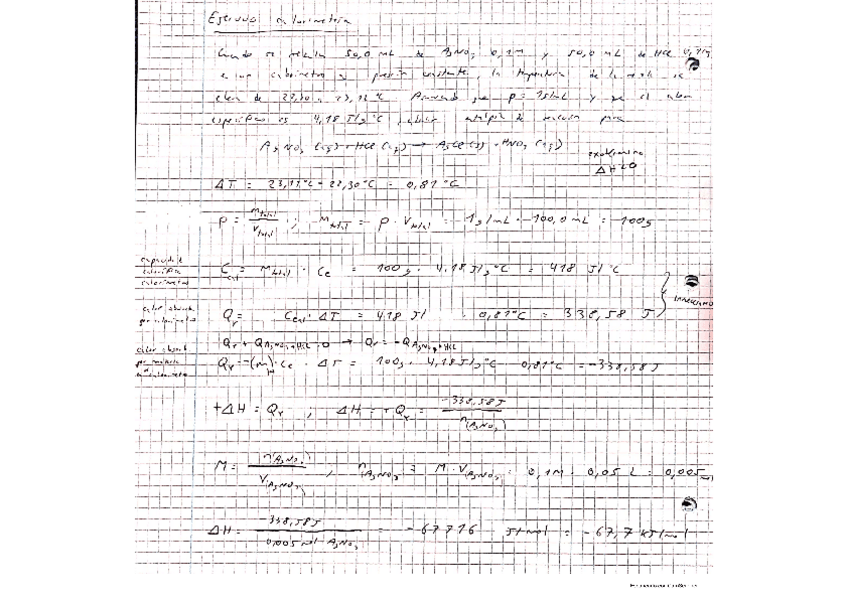 Ejercicio calorimetría
Cuando se mezclan 50,0 mL de AgNO3 0,1M y 50,0 mL de HCl 0,1M
en un calorímetro a presión constante, la temperatura de la mezcla se
eleva de 22,30 a 23,11 °C Asumiendo que ρ = 1g/mL y que el calor
específico es 4,18 J/g°C, calcular entalpía de reacción para
AgNO3 (aq) + HCl (aq) → AgCl (s) + HNO3 (aq)
exotérmico
ΔH<0
ΔT = 23,11°C - 22,30°C = 0,81°C
ρ = mtotal / Vtotal ; mtotal = ρ · Vtotal = 1g/mL · 100,0 mL = 100g
capacidad
calorífica
calorímetro
Ccal = mtotal · Ce = 100g · 4,18 J/g°C = 418 J/°C
calor absorb
por calorímetro
Qr = Ccal · ΔT = 418 J/ · 0,81°C = 338,58 J
innecesario
calor absorb
Qr + QAgNO3+HCl = 0 → Qr = -QAgNO3+HCl
Qr = -(m) · Ce · ΔT = 100g · 4,18 J/g°C 0,81°C = -338,58 J
+ΔH = Qr ; ΔH = + Qr = -338,58 J / n(AgNO3)
M = n(AgNO3) / V(AgNO3) , n(AgNO3) = M · V(AgNO3) = 0,1M · 0,05 L = 0,005 mol
ΔH = -338,58 J / 0,005 mol AgNO3 = -67716 J/mol = -67,7 kJ/mol